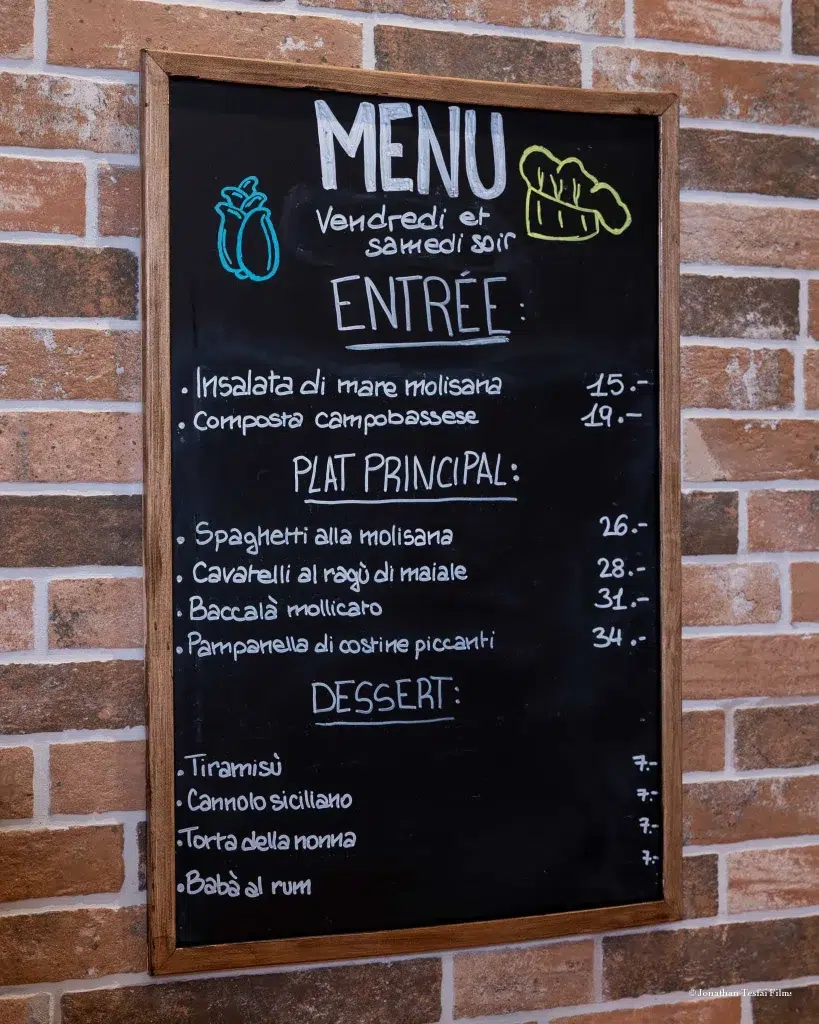 MENU
Vendredi et
samedi soir
ENTRÉE:
• Insalata di mare molisana 15.-
• Composta campobassese 19.-
PLAT PRINCIPAL:
• Spaghetti alla molisana 26.-
• Cavatelli al ragù di maiale 28.-
• Baccalà mollicato 31.-
• Pampanella di costine piccanti 34.-
DESSERT:
• Tiramisù 7.-
• Cannolo siciliano 7.-
• Torta della nonna 7.-
• Babà al rum 7.-
© Jonathan Tesfai Films